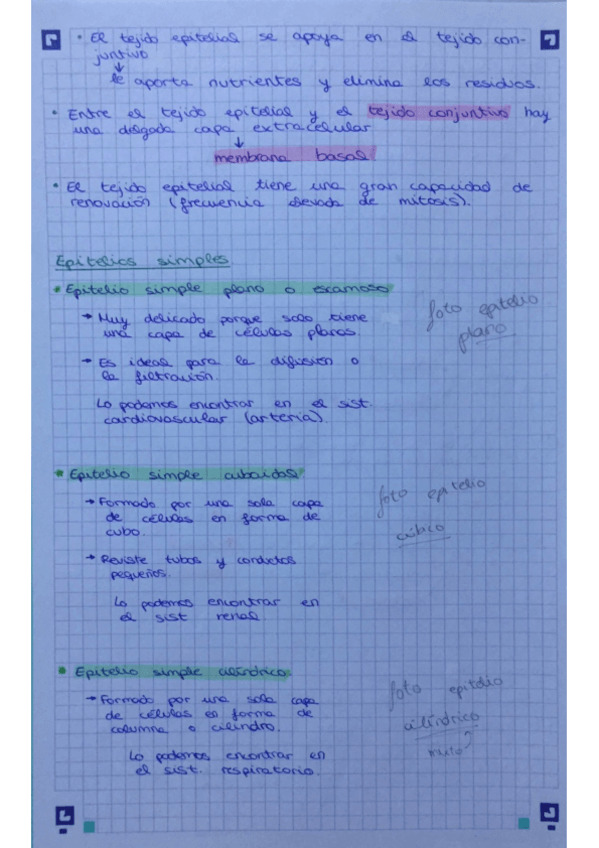 • El tejido epitelial se apoya en el tejido con-
juntivo
↓
le aporta nutrientes y elimina los residuos.
• Entre el tejido epitelial y el tejido conjuntivo hay
una delgada capa extracelular
↓
membrana basal
• El tejido epitelial tiene una gran capacidad de
renovación (frecuencia elevada de mitosis).
Epitelios simples
• Epitelio simple plano o escamoso
→ Muy delicado porque solo tiene
una capa de células planas.
foto epitelio
plano
→ Es ideal para la difusión o
la filtración.
Lo podemos encontrar en el sist.
cardiovascular (arteria).
• Epitelio simple cuboidal
→ Formado por una sola capa
de células en forma de
cubo.
foto epitelio
cúbico
→ Reviste tubos y conductos
pequeños.
Lo podemos encontrar en
el sist renal.
• Epitelio simple cilíndrico.
→ Formado por una sola capa
de células en forma de
columna o cilindro.
foto epitelio
cilíndrico
Lo podemos encontrar en
el sist. respiratorio.